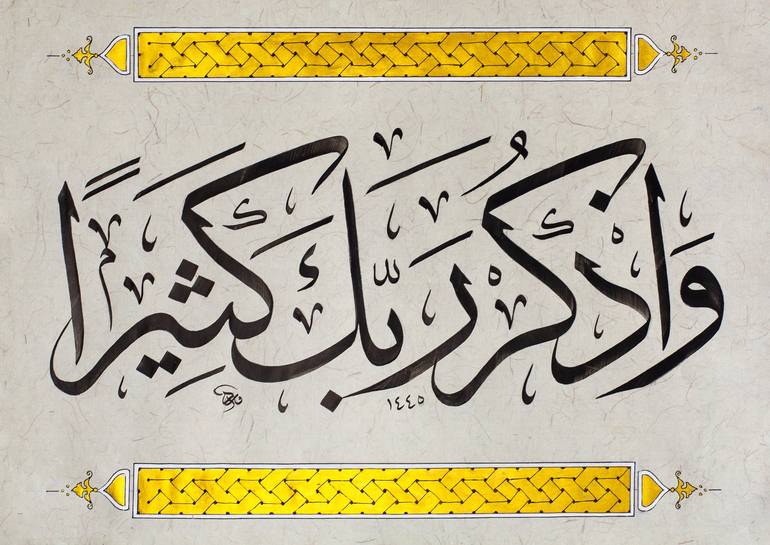 وَاذْكُر رَّبَّكَ كَثِيرًا
١٤٤٥